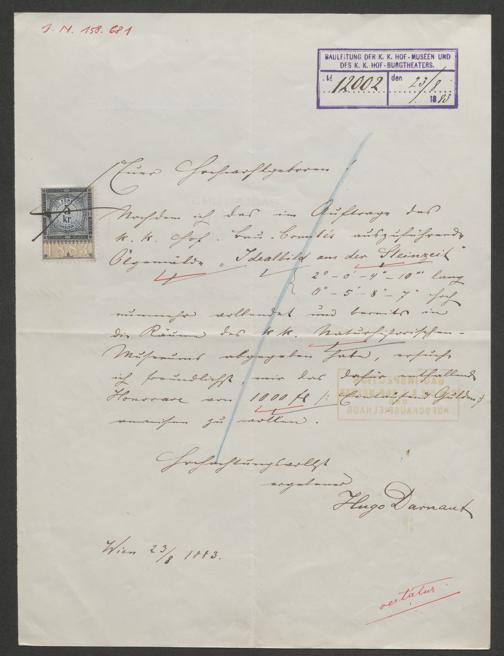 J. N. 158.681
BAULEITUNG DER K. K. HOF-MUSEEN UND
DES K. K. HOF-BURGTHEATERS.
№ 12002 den 23/8
1883
Euer Hochwohlgeboren!
Nachdem ich das im Auftrage des
k. k. Hof-Bau-Comités auszuführende
Ölgemälde „Idealbild aus der Steinzeit"
2°-0'-4"-10''' lang
0°-5'-8"-7''' hoch
nunmehr vollendet und bereits in
die Räume des k. k. Naturhistorischen-
Museums abgegeben habe, ersuche
ich freundlichst, mir das dafür entfallende
Honorar von 1000 fl (: Gulden :)
anweisen zu wollen.
Hochachtungsvollst
ergebener
Hugo Darnaut
Wien 23/8 1883.